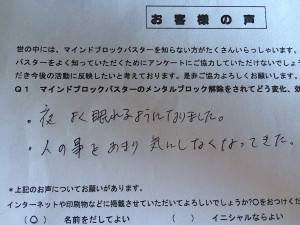 お客様の声
世の中には、マインドブロックバスターを知らない方がたくさんいらっしゃいます。
バスターをよく知っていただくためにアンケートにご協力していただけないでしょう
だき今後の活動に反映したいと考えております。是非ご協力よろしくお願いします。
Q1 マインドブロックバスターのメンタルブロック解除をされてどう変化、効
・夜 よく眠れるようになりました。
・人の事をあまり気にしなくなってきた。
*上記のお声についてお願いがあります。
インターネットや印刷物などに掲載させていただいてよろしいでしょうか?○をおつけくだ
(○) 名前をだしてよい ( ) イニシャルならよい